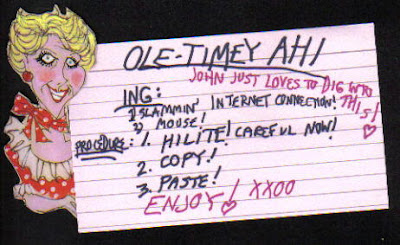 OLE-TIMEY AHI
JOHN JUST LOVES TO DIG INTO THIS!
ING:
1) SLAMMIN' INTERNET CONNECTION!
2) MOUSE!
PROCEDURE: 1. HILITE! CAREFUL NOW!
2. COPY!
3. PASTE!
ENJOY! XXOO